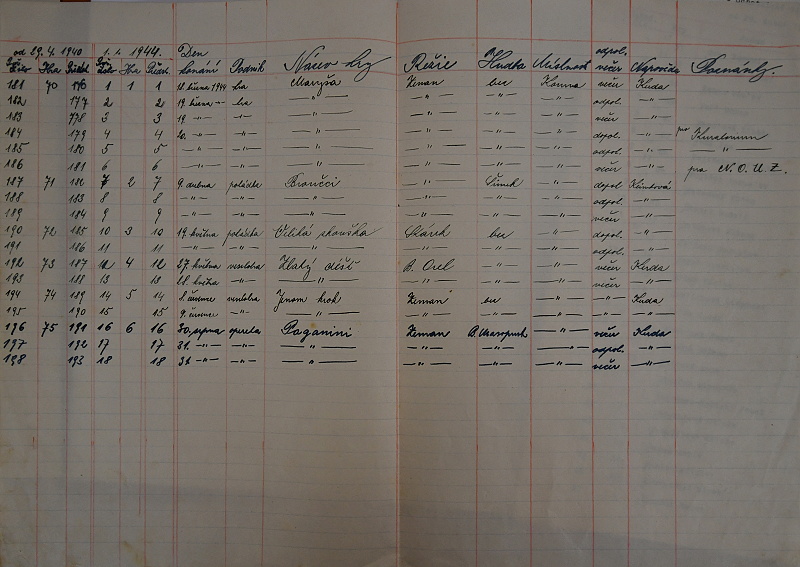 od 29. 4. 1940 1. 1. 1944. Den odpol.
Hra Předst. Hra Předst. konání Podnik Název hry Režie Hudba Místnost večer Nápověda Poznámky.
181 70 176 1 1 1 18. března 1944 hra Maryša Zeman bez Koruna večer Kuda
182 177 2 2 19. března -"- hra -"- -"- -"- -"- odpol. -"-
183 178 3 3 19 -"- -"- -"- -"- -"- -"- večer -"-
184 179 4 4 20. -"- -"- -"- -"- -"- -"- dopol. -"- pro Kuratorium
185 180 5 5 -"- -"- -"- -"- -"- -"- odpol. -"- -"-
186 181 6 6 -"- -"- -"- -"- -"- -"- večer -"- pro N. O. U. Z.
187 71 182 7 2 7 9. dubna pohádka Broučci -"- Šimek -"- dopol.
188 183 8 8 -"- -"- -"- -"- -"- -"- odpol. -"-
189 184 9 9 -"- -"- -"- -"- -"- -"- večer -"-
190 72 185 10 3 10 19. května pohádka Veliká zkouška bez -"- dopol. -"-
191 186 11 11 -"- -"- -"- -"- -"- -"- odpol. -"-
192 73 187 12 4 12 27. května veselohra Zlatý déšť B. Orel -"- -"- večer Kuda
193 188 13 13 28. května -"- -"- -"- -"- -"- večer -"-
194 74 189 14 5 14 8. července veselohra Jenom krok Zeman bez -"- -"- Kuda
195 190 15 15 9. července -"- -"- -"- -"- -"- -"- -"-
196 75 191 16 6 16 30. srpna opereta Paganini Zeman -"- večer Kuda
197 192 17 17 31. -"- -"- -"- -"- -"- -"- odpol. -"-
198 193 18 18 31. -"- -"- -"- -"- -"- -"- večer -"-